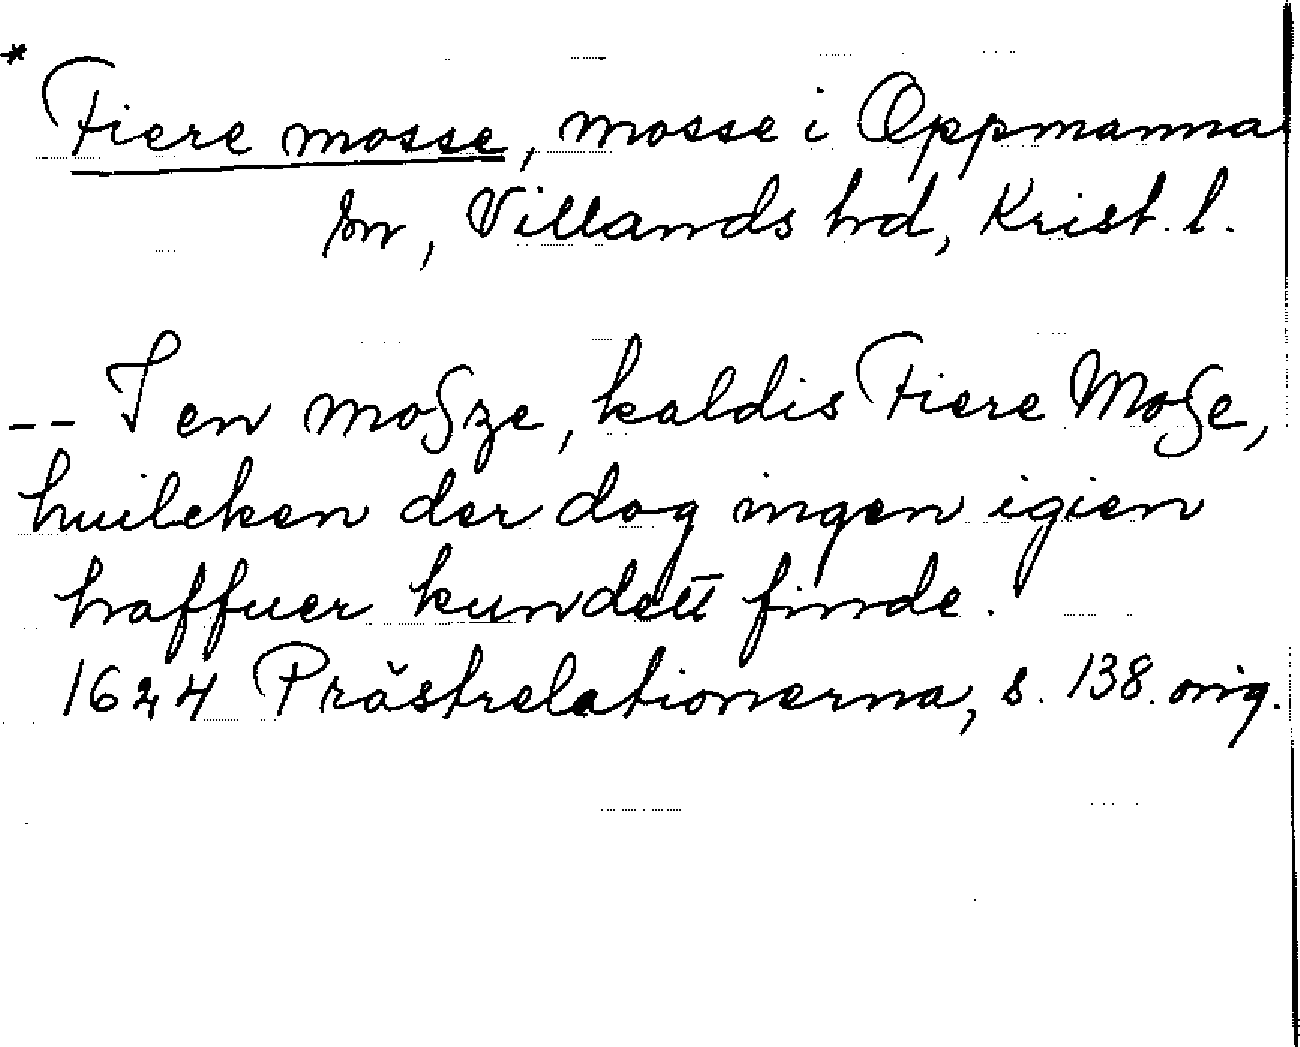 * Fiere mosse, mosse i Oppmanna
sn, Villands hd, Krist. l.
-- I en moßze, kaldis Fiere Moße,
huilcken der dog ingen igien
haffuer kundett finde.
1624 Prästrelationerna, s. 138. orig.